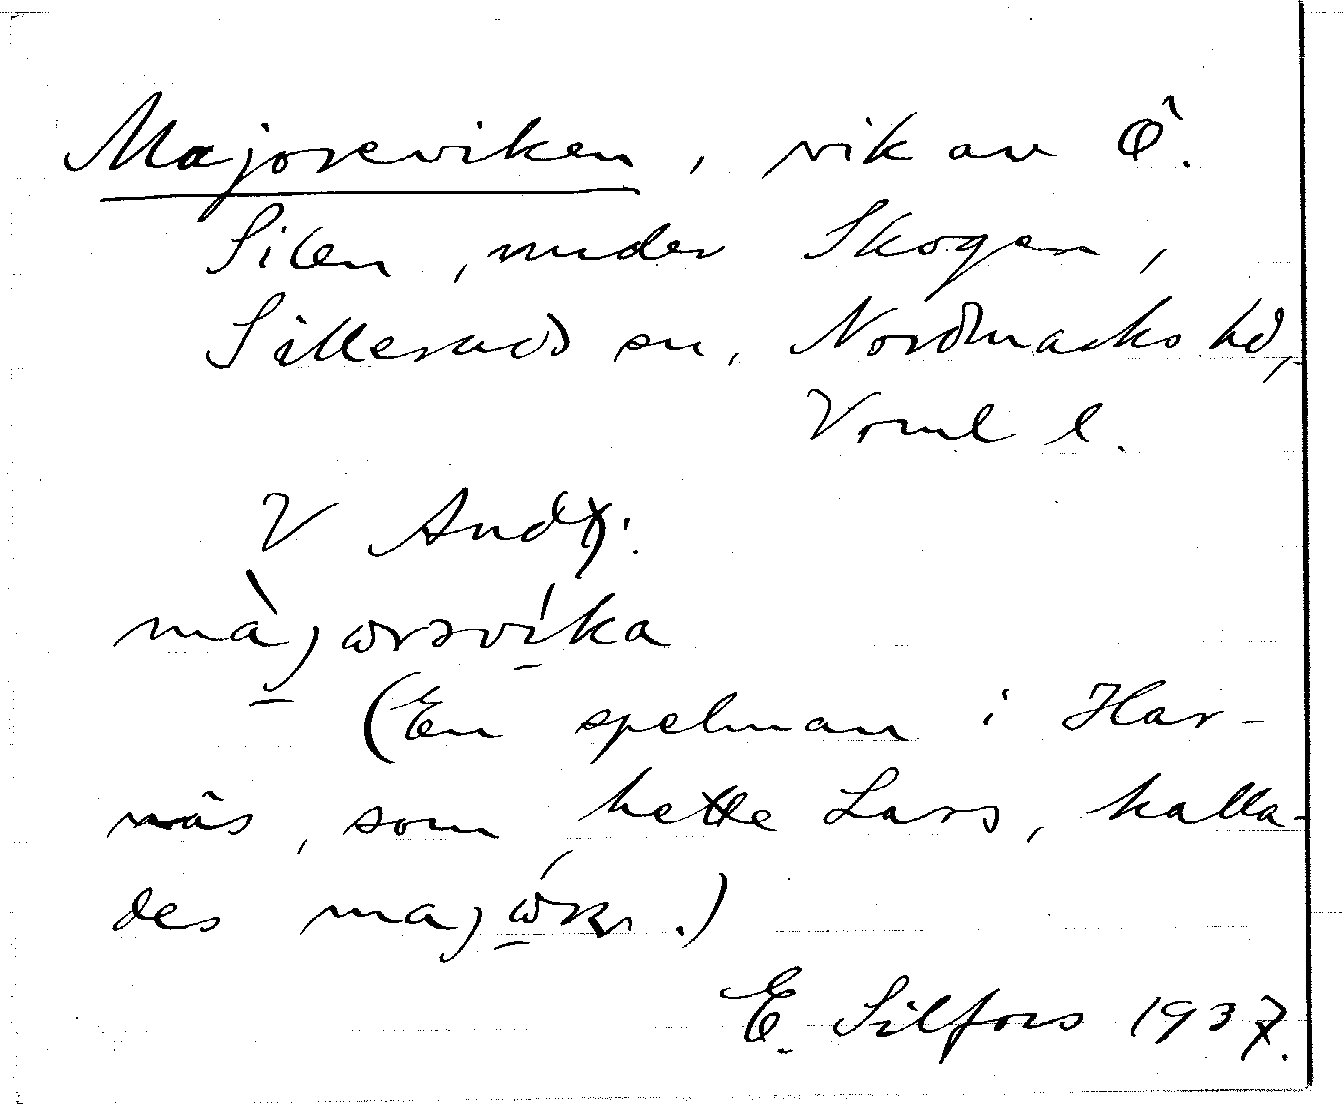 Majoreviken, vik av Ö.
Silen, under Skogen,
Sillerud sn, Nordmarks hd,
Vrml l.
V And.:
màjωrəvíka
(En spelman i Har-
näs, som hette Lars, kalla-
des majώr.)
E. Silfors 1937.